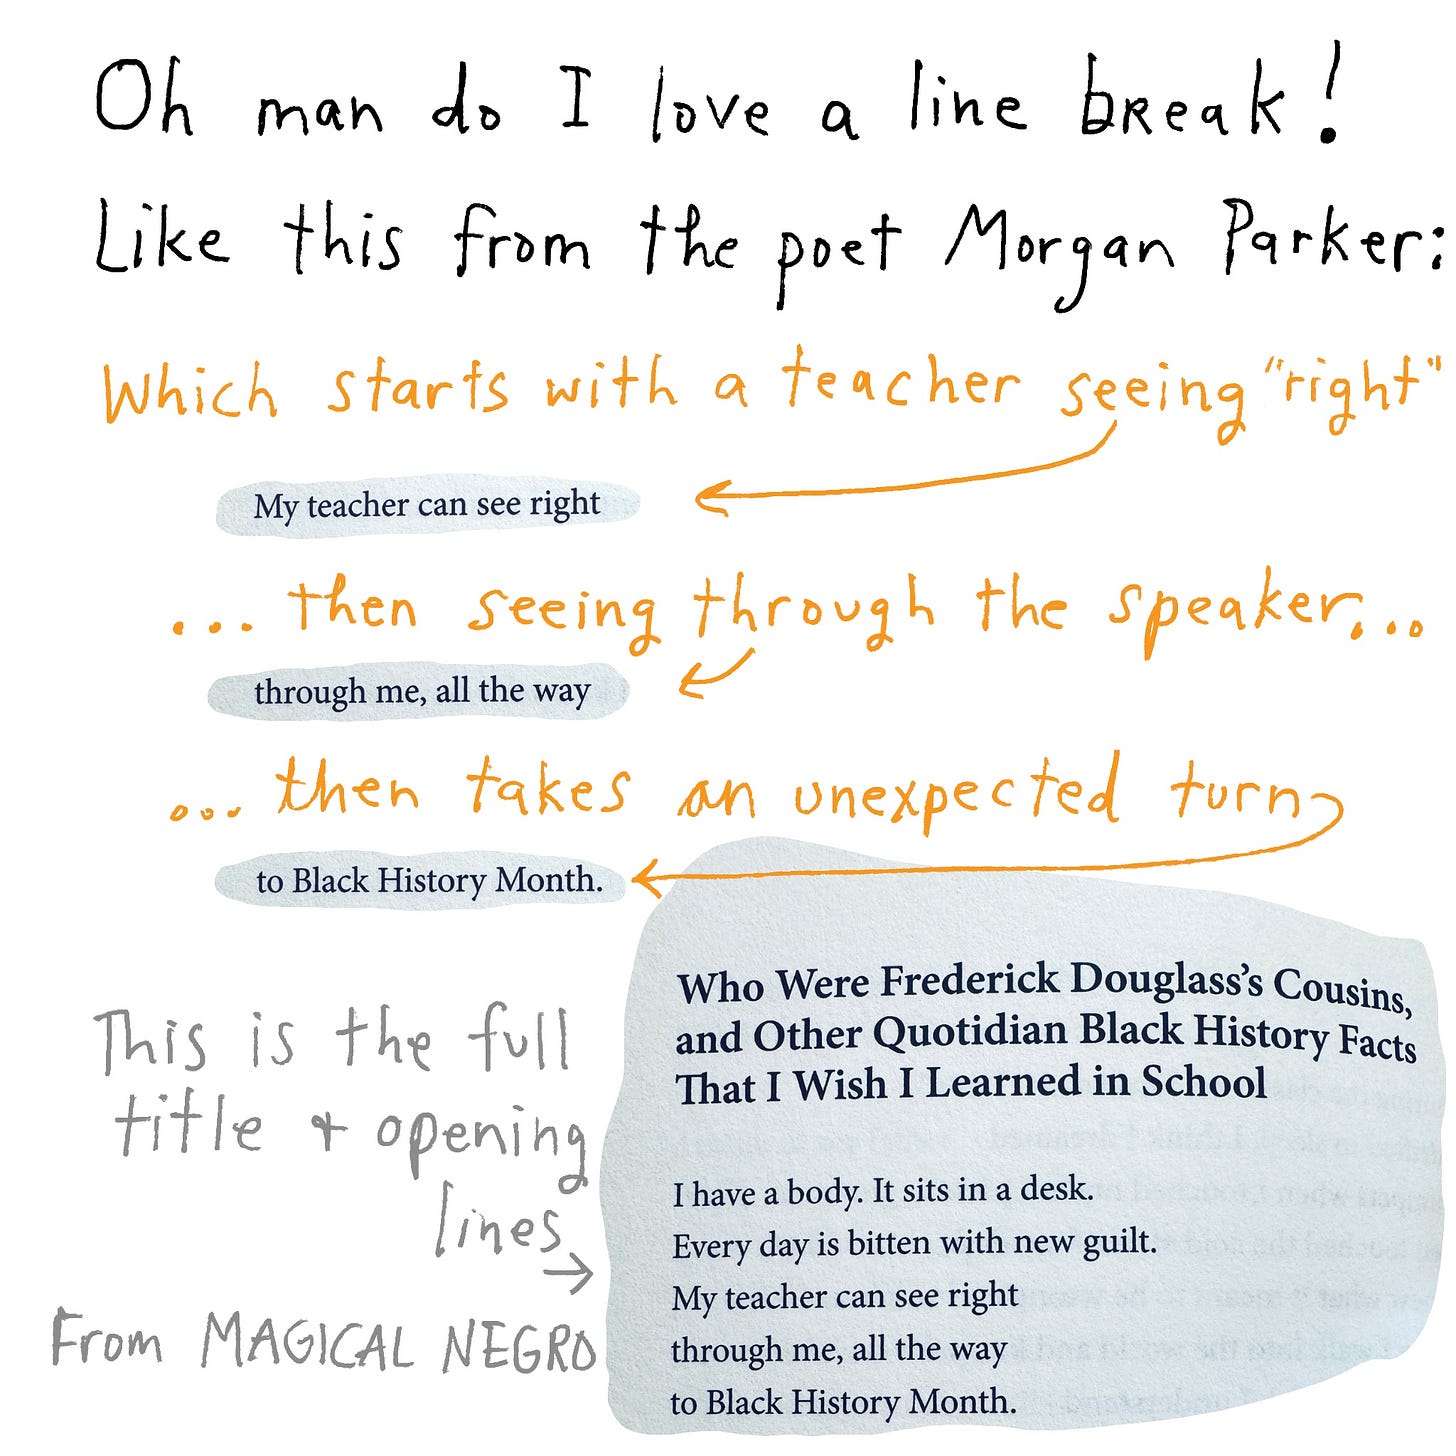 Oh man do I love a line break!
Like this from the poet Morgan Parker:
Which starts with a teacher seeing "right"
My teacher can see right
... then seeing through the speaker...
through me, all the way
... then takes an unexpected turn
to Black History Month.
This is the full
title + opening
lines
From MAGICAL NEGRO
Who Were Frederick Douglass's Cousins,
and Other Quotidian Black History Facts
That I Wish I Learned in School
I have a body. It sits in a desk.
Every day is bitten with new guilt.
My teacher can see right
through me, all the way
to Black History Month.